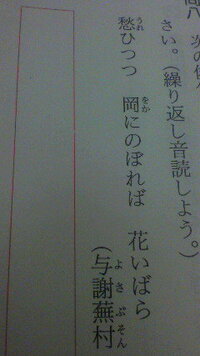 さい。(繰り返し音読しよう。)
愁ひつつ 岡にのぼれば 花いばら
(与謝蕪村